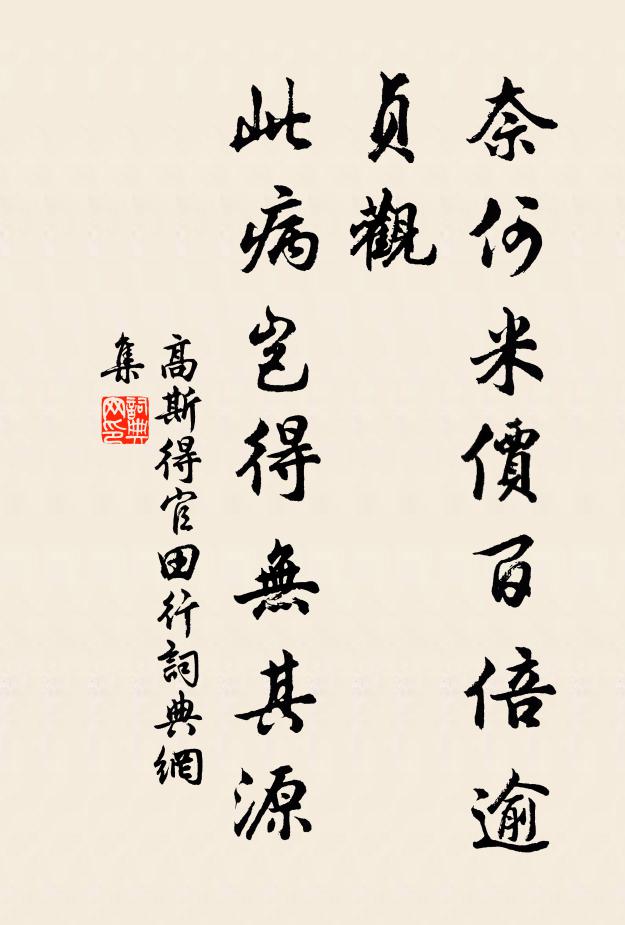 奈何米價百倍逾
貞觀
此病岂得無其源
高斯得官田行詞典網
集
詞典网印